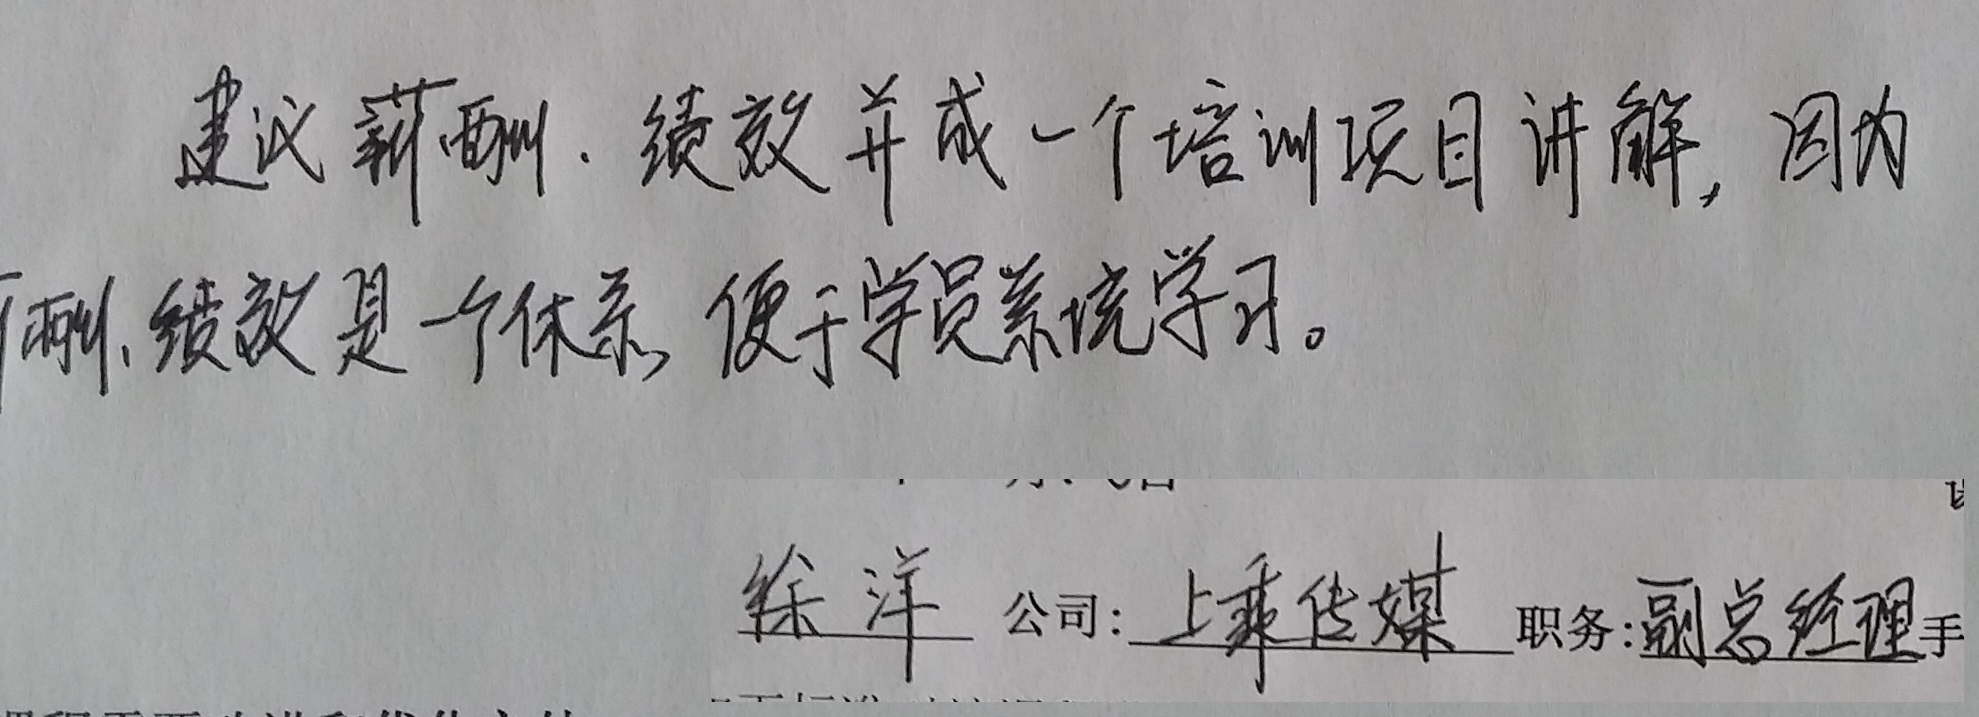 建议薪酬、绩效并成一个培训项目讲解，因为
薪酬、绩效是一个体系，便于学员系统学习。
徐洋 公司：上乘传媒 职务：副总经理手